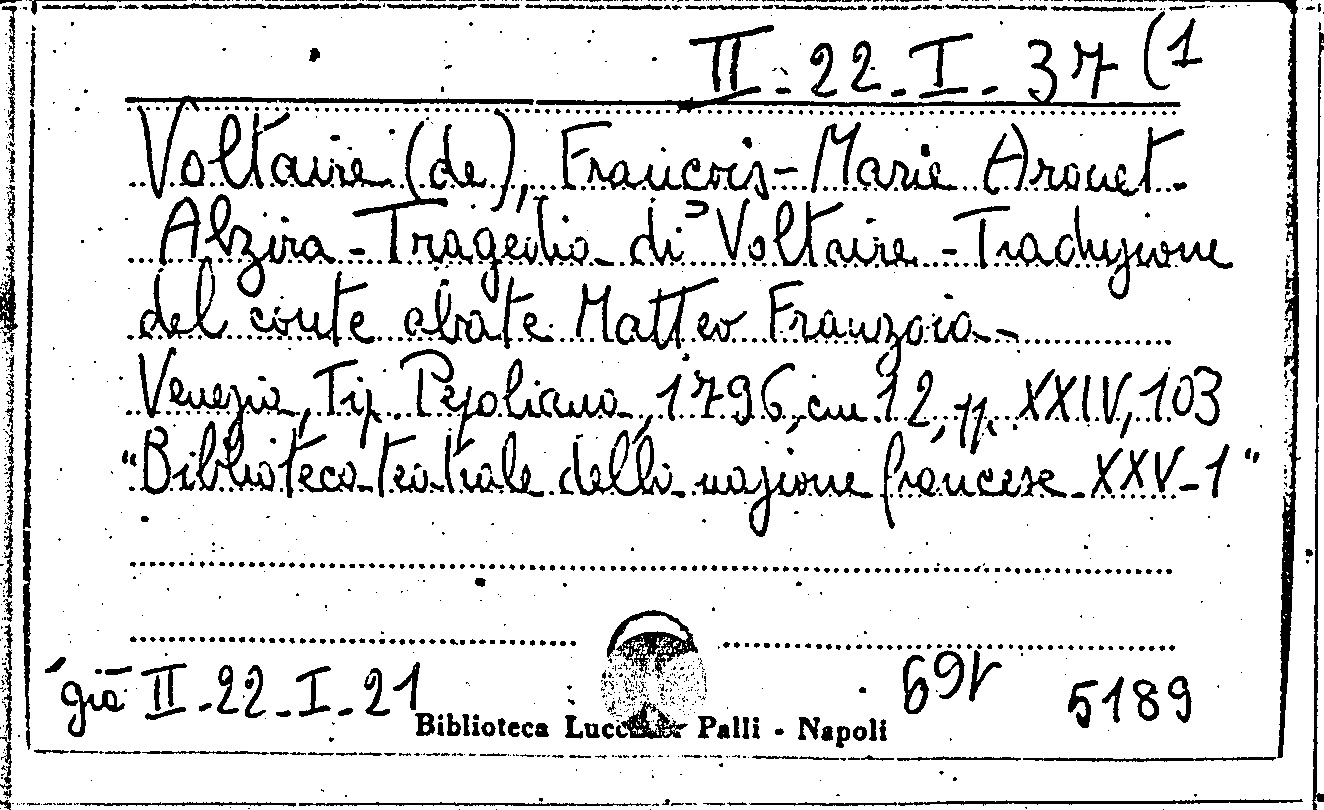 II-22-I-37 (1
Voltaire (de), François-Marie Arouet.
Alzira - Tragedia di Voltaire - Traduzione
del conte abate Matteo Franzoia -
Venezia, Tip. Pepoliana, 1796, cm 12, pp. XXIV, 103
"Biblioteca teatrale della nazione francese - XXV-1"
già II-22-I-21
69r 5189
Biblioteca Palli - Napoli